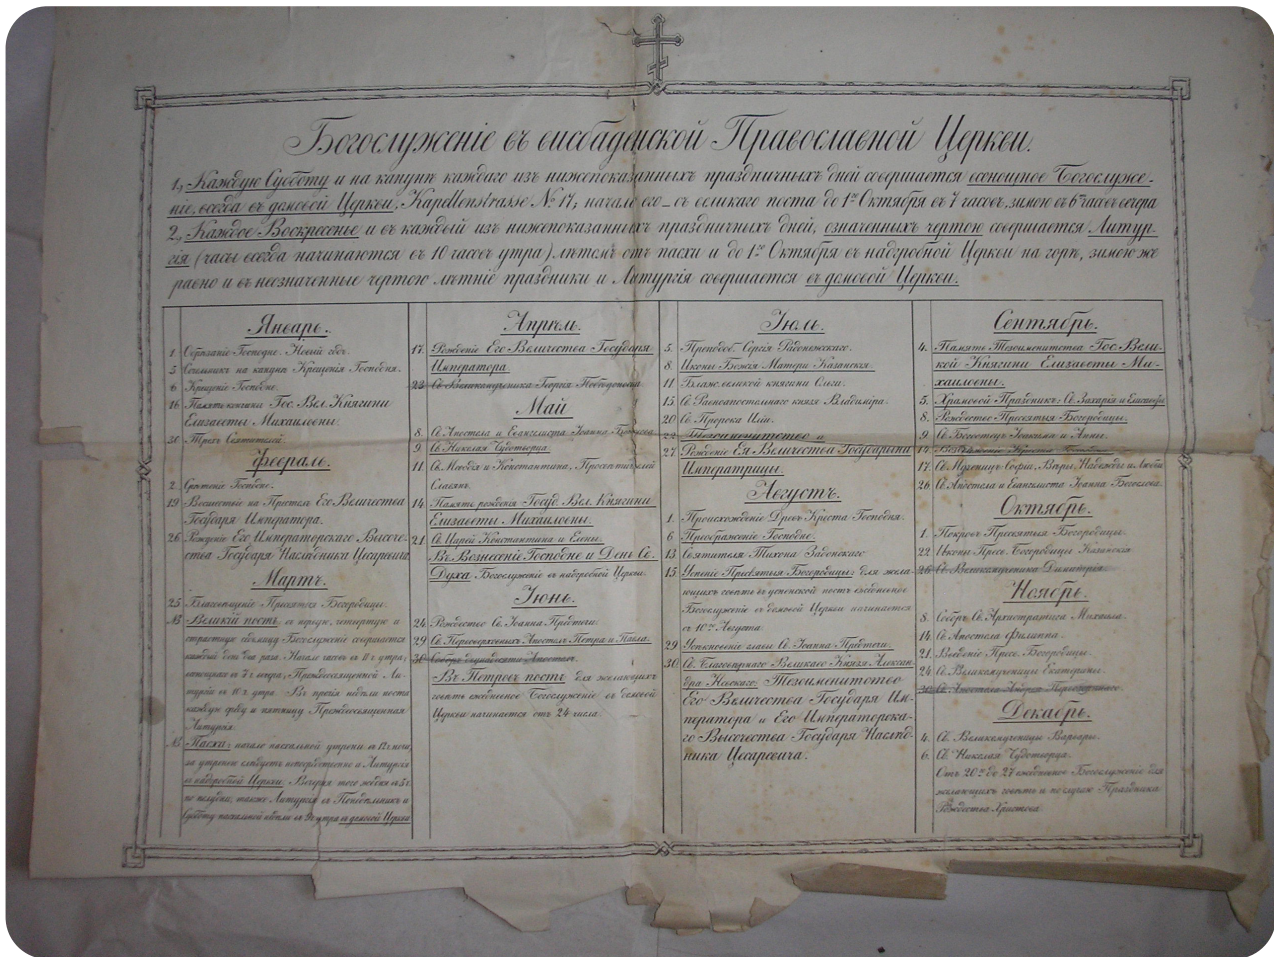 Богослуженіе въ висбаденской Православной Церкви.
1., Каждую Субботу и на канунѣ каждаго изъ нижепоказанныхъ праздничныхъ дней совершается всенощное Богослуже-
ніе, всегда въ домовой Церкви, Kapellenstrasse № 17, начало его – съ великаго поста до 1го Октября въ 7 часов, зимою въ 6 часов вечера
2., Каждое Воскресенье и въ каждый изъ нижепоказанныхъ праздничныхъ дней, означенныхъ чертою совершается Литур-
гія (часы всегда начинаются въ 10 часов утра) лѣтомъ отъ пасхи и до 1го Октября въ надгробной Церкви на горѣ, зимою же
равно и въ неозначенные чертою лѣтніе праздники и Литургія совершается въ домовой Церкви.
Январь.
1. Обрѣзаніе Господне. Новый годъ.
5 Сочельникъ на канунѣ Крещенія Господня.
6 Крещеніе Господне.
16 Память кончины Гос. Вел. Княгини
Елизаветы Михаиловны.
30 Трехъ Святителей.
Февраль.
2. Срѣтеніе Господне.
19 Восшествіе на Престолъ Его Величества
Государя Императора.
26 Рожденіе Его Императорскаго Высоче-
ства Государя Наслѣдника Цесаревича
Мартъ.
25 Благовѣщеніе Пресвятыя Богородицы.
Великій постъ, въ первую, четвертую и
страстную седмицу Богослуженіе совершается
каждый день два раза. Начало часов въ 11 ч утра,
вечерни въ 7 ч вечера, Преждеосвященной Ли-
тургіи въ 10 ч утра. Въ прочія недѣли поста
каждую среду и пятницу Преждеосвященная
Литургія
Пасха: начало пасхальной утрени въ 12 ч ночи,
за утренею слѣдуетъ непосредственно и Литургія
въ надгробной Церкви. Вечерня того же дня въ
по полудни, также Литургія въ Понедѣльникъ и
Субботу пасхальной недѣли въ утра въ домовой Церкви
Апрѣль.
17. Рожденіе Его Величества Государя
Императора
23 Св Великомученика Георгія Побѣдоносца
Май
8. Св Апостола и Евангелиста Іоанна Богослова
9. Св Николая Чудотворца
11 Св. Мефодія и Константина, Просвѣтителей
Славян.
14 Память рожденія Госуд Вел. Княгини
Елизаветы Михаиловны.
21. Св Царей Константина и Елены.
Въ Вознесеніе Господне и День Св.
Духа Богослуженіе въ надгробной Церкви
Іюнь.
24. Рождество Св. Іоанна Предтечи.
29 Св Первоверховныхъ Апостолъ Петра и Павла.
30 Собора двунадесяти Апостолъ.
Въ Петровъ постъ для желающихъ
говѣть ежедневное Богослуженіе въ домовой
Церкви начинается отъ 24 числа.
Іюль.
5. Преподоб. Сергія Радонежскаго.
8. Иконы Божія Матери Казанскія.
11 Блаж. великой княгини Ольги.
15 Св Равноапостольнаго князя Владиміра.
20 Св Пророка Иліи.
22 Тезоименитство и
27 Рожденіе Ея Величества Государыни
Императрицы.
Августъ.
1. Происхожденіе Древъ Креста Господня.
6 Преображеніе Господне.
13 Святителя Тихона Задонскаго
15 Успеніе Пресвятыя Богородицы: для жела-
ющихъ говѣть въ успенской постъ ежедневное
Богослуженіе въ домовой Церкви начинается
съ 10го Августа
29 Усѣкновеніе главы Св Іоанна Предтечи.
30 Св. Благовѣрнаго Великаго Князя Алексан-
дра Невскаго. Тезоименитство
Его Величества Государя Им-
ператора и Его Императорска-
го Высочества Государя Наслѣд-
ника Цесаревича.
Сентябрь.
4. Память Тезоименитства Гос. Вели-
кой Княгини Елизаветы Ми-
хаиловны.
5. Храмовой Праздникъ: Св Захарія и Елисаветы
8. Рождество Пресвятыя Богородицы.
9 Св Богоотецъ Іоакима и Анны.
14 Воздвиженіе Креста Господня
17. Св Мученицъ Софіи, Вѣры, Надежды и Любви
26. Св Апостола и Евангелиста Іоанна Богослова
Октябрь.
1. Покровъ Пресвятыя Богородицы
22 Иконы Пресв. Богородицы Казанскія
26 Св Великомученика Димитрія
Ноябрь.
8. Соборъ Св. Архистратига Михаила.
14. Св Апостола Филиппа.
21. Введеніе Пресв. Богородицы.
24 Св. Великомученицы Екатерины.
30 Св. Апостола Андрея Первозваннаго
Декабрь.
4. Св Великомученицы Варвары.
6. Св Николая Чудотворца.
Отъ 20го до 27 ежедневное Богослуженіе для
желающихъ говѣть и по случаю Праздника
Рождества Христова